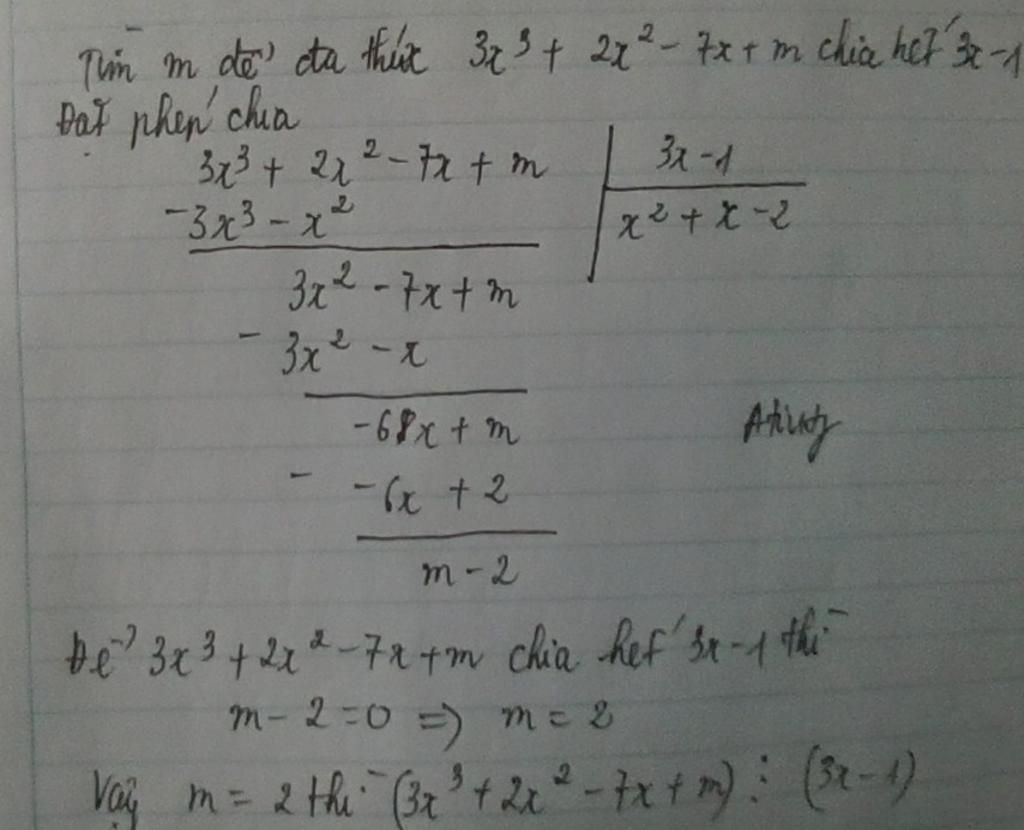 Tìm m để đa thức 3x³ + 2x² - 7x + m chia hết 3x-1
Đặt phép chia
3x³ + 2x² - 7x + m | 3x-1
- 3x³ - x² | x² + x - 2
3x² - 7x + m
- 3x² - x
-6x + m
- -6x + 2
m - 2
Để 3x³ + 2x² - 7x + m chia hết 3x-1 thì
m - 2 = 0 => m = 2
Vậy m = 2 thì (3x³ + 2x² - 7x + m) ⋮ (3x-1)